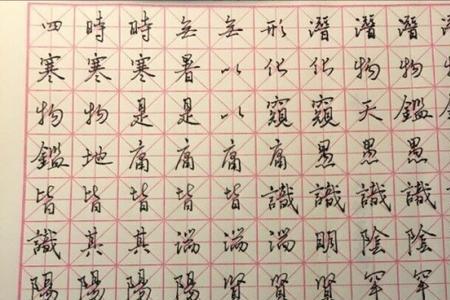 四時時無無形潛潛潛
寒寒寒暑以化化物物
物物是是以窺窺天鑑
鑑地庸庸庸庸愚愚愚
皆皆皆皆皆識識識識
識其其端端端明陰陰
陽陽陽陽賢賢賢罕罕